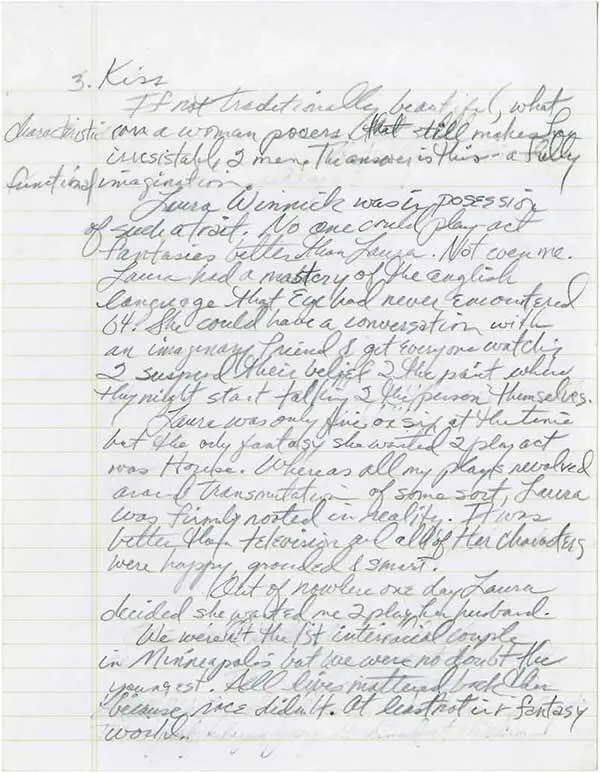 3. Kiss
If not traditionally beautiful, what
characteristic can a woman possess that still makes her
irresistable 2 men? The answer is this - a fully
functional imagination.
Laura Winnick was in posession
of such a trait. No one could play act
fantasies better than Laura. Not even me.
Laura had a mastery of the english
language that Eye had never encountered
b4. She could have a conversation with
an imaginary friend & get everyone watching
2 suspend their belief 2 the point where
they might start talking 2 the person themselves.
Laura was only five or six at the time
but the only fantasy she wanted 2 play act
was House. Whereas all my plays revolved
around transmutation of some sort, Laura
was firmly rooted in reality. It was
better than television and all of her characters
were happy, grounded & smart.
Out of nowhere one day Laura
decided she wanted me 2 play her husband.
We weren't the 1st interracial couple
in Minneapolis but we were no doubt the
youngest. All lives mattered back then
because race didn't. At least not in r fantasy
world.